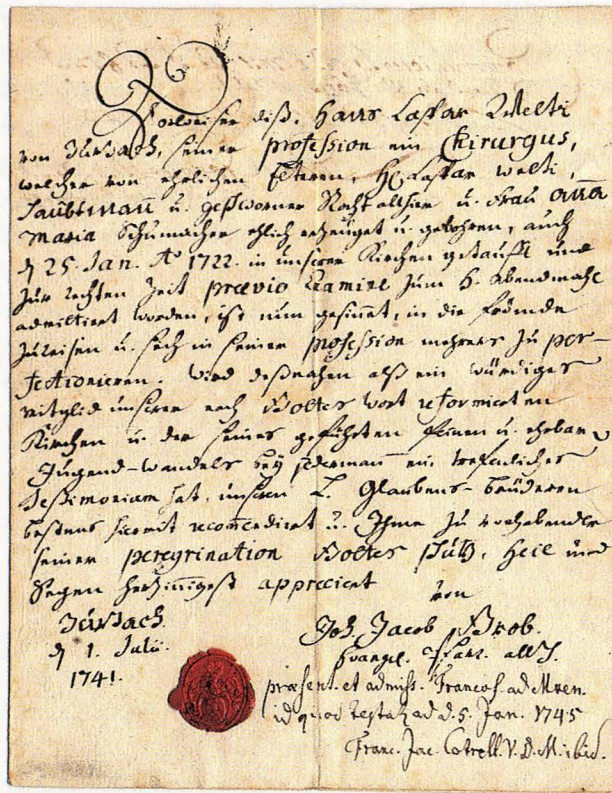 Vorweiser diß, Hans Caspar Welti
von Zurzach, seiner profession ein Chirurgus,
welcher von ehrlichen Elteren, H. Caspar Welti,
Haubtman̄ u. geschworner Raht allhier u. Frau An̄a
Maria Schumacher ehlich erzeüget u. gebohren, auch
d. 25. Jan. Aº 1722. in unserer Kirchen getaufft und
zur rechten Zeit prævio Examine zum H. Abendmahl
admittiert worden, ist nun gesinnet, in die Frömde
zureisen u. sich in seiner profession mehrers zu per-
fectionieren. Wird deßnahen alß ein würdiges
mitglid unserer nach Gottes wort reformierten
Kirchen u. der seines geführten feinen u. ehrbaren
Jugend-wandels bey jederman̄ ein treffenliches
Testimonium hat, unseren L. Glaubens-brüderen
bestens hiermit recom̄endiert u. Ihme zu vorhabender
seiner peregrination Gottes schutz, Heil und
Segen hertzin̄igest appreciert
von
Zurzach.
d. 1. Julii.
1741.
Joh. Jacob Grob.
Evangel. Pfarr. allh.
præsent. et admiss. Francof. ad Mœn.
id quod testatur d. 5. Jan. 1745
Franc. Jac. Cotrell. V. D. M. ibid.